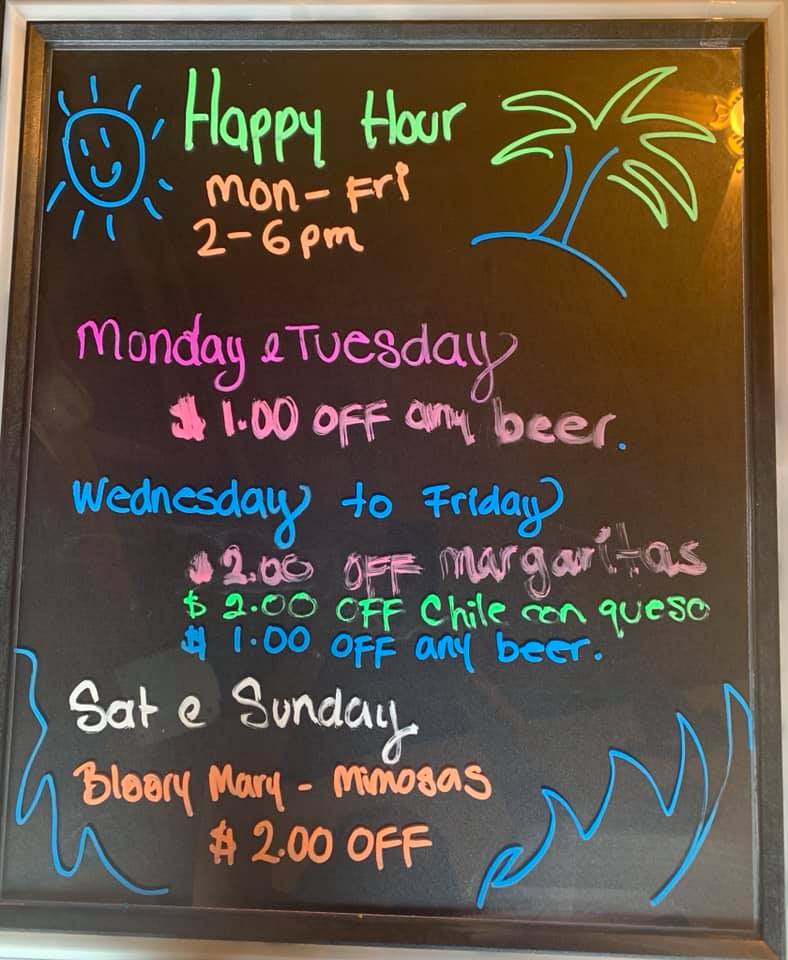 Happy Hour
Mon-Fri
2-6pm
Monday e Tuesday
$1.00 OFF any beer.
Wednesday to Friday
$2.00 OFF margaritas
$2.00 OFF Chile con queso
$1.00 OFF any beer.
Sat e Sunday
Bloory Mary - Mimosas
$2.00 OFF